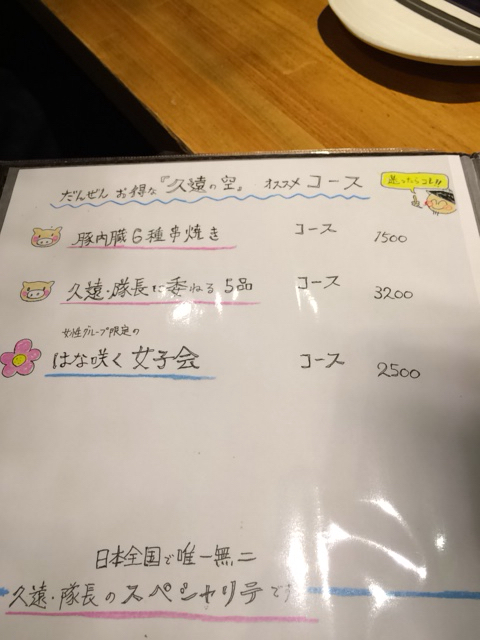 だんぜん お得な『久遠の空』 オススメ コース
迷ったらコレ!!
豚内臓6種串焼き コース 1500
久遠・隊長に委ねる 5品 コース 3200
女性グループ限定の
はな咲く 女子会 コース 2500
日本全国で唯一無二
久遠・隊長のスペシャリテです